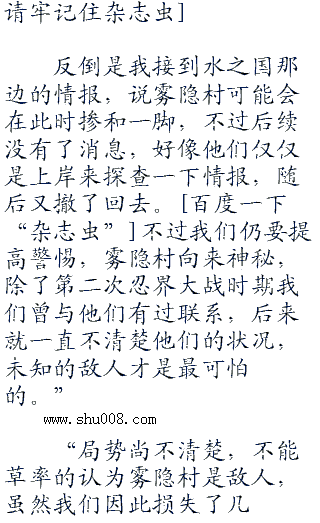 请牢记住杂志虫]
反倒是我接到水之国那
边的情报，说雾隐村可能会
在此时掺和一脚，不过后续
没有了消息，好像他们仅仅
是上岸来探查一下情报，随
后又撤了回去。[百度一下
“杂志虫”]不过我们仍要提
高警惕，雾隐村向来神秘，
除了第二次忍界大战时期我
们曾与他们有过联系，后来
就一直不清楚他们的状况，
未知的敌人才是最可怕
的。”
www.shu008.com
“局势尚不清楚，不能
草率的认为雾隐村是敌人，
虽然我们因此损失了几